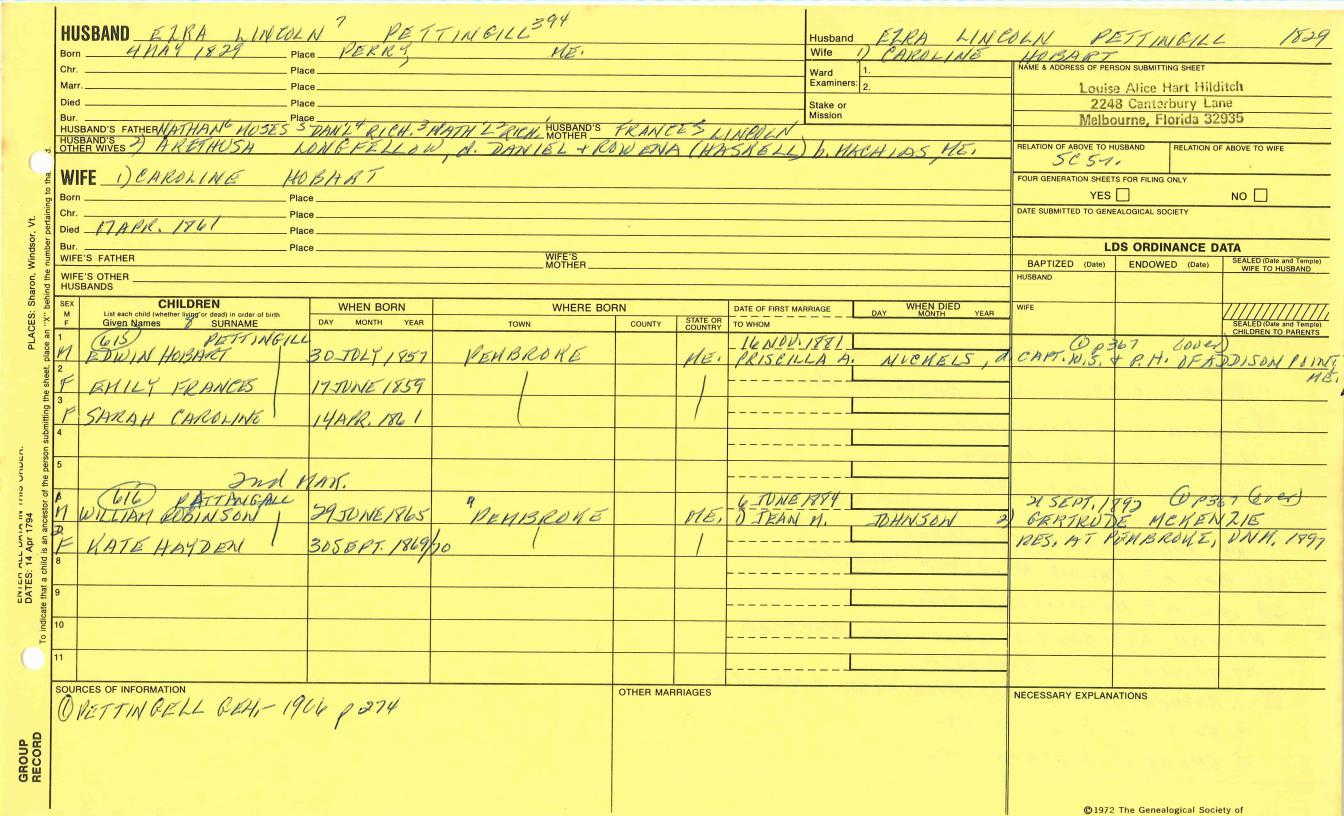 HUSBAND EZRA LINCOLN 7 PETTINGILL 394
Born 4 MAY 1829 Place PERRY, ME.
Chr. Place
Marr. Place
Died Place
Bur. Place
HUSBAND'S FATHER NATHAN 6 MOSES 5 DAN'L 4 RICH. 3 NATH'L 2 RICH. 1 HUSBAND'S MOTHER FRANCES LINCOLN
HUSBAND'S OTHER WIVES 2) ARETHUSA LONGFELLOW, d. DANIEL + ROWENA (HASKELL) b. MACHIAS, ME.
Husband EZRA LINCOLN PETTINGILL 1829
Wife 1) CAROLINE HOBART
Ward Examiners: 1.
2.
Stake or Mission
NAME & ADDRESS OF PERSON SUBMITTING SHEET
Louise Alice Hart Hilditch
2248 Canterbury Lane
Melbourne, Florida 32935
RELATION OF ABOVE TO HUSBAND RELATION OF ABOVE TO WIFE
FOUR GENERATION SHEETS FOR FILING ONLY
YES NO
DATE SUBMITTED TO GENEALOGICAL SOCIETY
WIFE 1) CAROLINE HOBART
Born Place
Chr. Place
Died 17 APR. 1861 Place
Bur. Place
WIFE'S FATHER WIFE'S MOTHER
WIFE'S OTHER HUSBANDS
LDS ORDINANCE DATA
BAPTIZED (Date) ENDOWED (Date) SEALED (Date and Temple) WIFE TO HUSBAND
HUSBAND
WIFE
SEALED (Date and Temple) CHILDREN TO PARENTS
SEX M F CHILDREN WHEN BORN WHERE BORN DATE OF FIRST MARRIAGE WHEN DIED
List each child (whether living or dead) in order of birth
Given Names 8 SURNAME DAY MONTH YEAR TOWN COUNTY STATE OR COUNTRY TO WHOM DAY MONTH YEAR
1 (615) PETTINGILL 16 NOV. 1881 (1) p367 (over)
M EDWIN HOBART 30 JULY 1857 PEMBROKE ME. PRISCILLA A. NICKELS, d. CAPT. W.S. & P.H. OF ADDISON POINT, ME.
2
F EMILY FRANCES 17 JUNE 1859
3
F SARAH CAROLINE 14 APR. 1861
4
5
2nd MAR.
(616) PATTANGALL 6 JUNE 1884 21 SEPT. 1892 (1) p367 (over)
M WILLIAM ROBINSON 29 JUNE 1865 " PEMBROKE ME. 1) JEAN M. JOHNSON 2) GERTRUDE MCKENZIE
F KATE HAYDEN 30 SEPT. 1869/70 RES. AT PEMBROKE, UNM. 1897
8
9
10
11
SOURCES OF INFORMATION
(1) PETTINGELL GEN.- 1906 p 274
OTHER MARRIAGES
NECESSARY EXPLANATIONS
©1972 The Genealogical Society of
PLACES: Sharon, Windsor, Vt.
ENTER ALL DATA IN THIS ORDER:
DATES: 14 Apr 1794
To indicate that a child is an ancestor of the person submitting the sheet, place an "X" behind the number pertaining to tha
GROUP RECORD